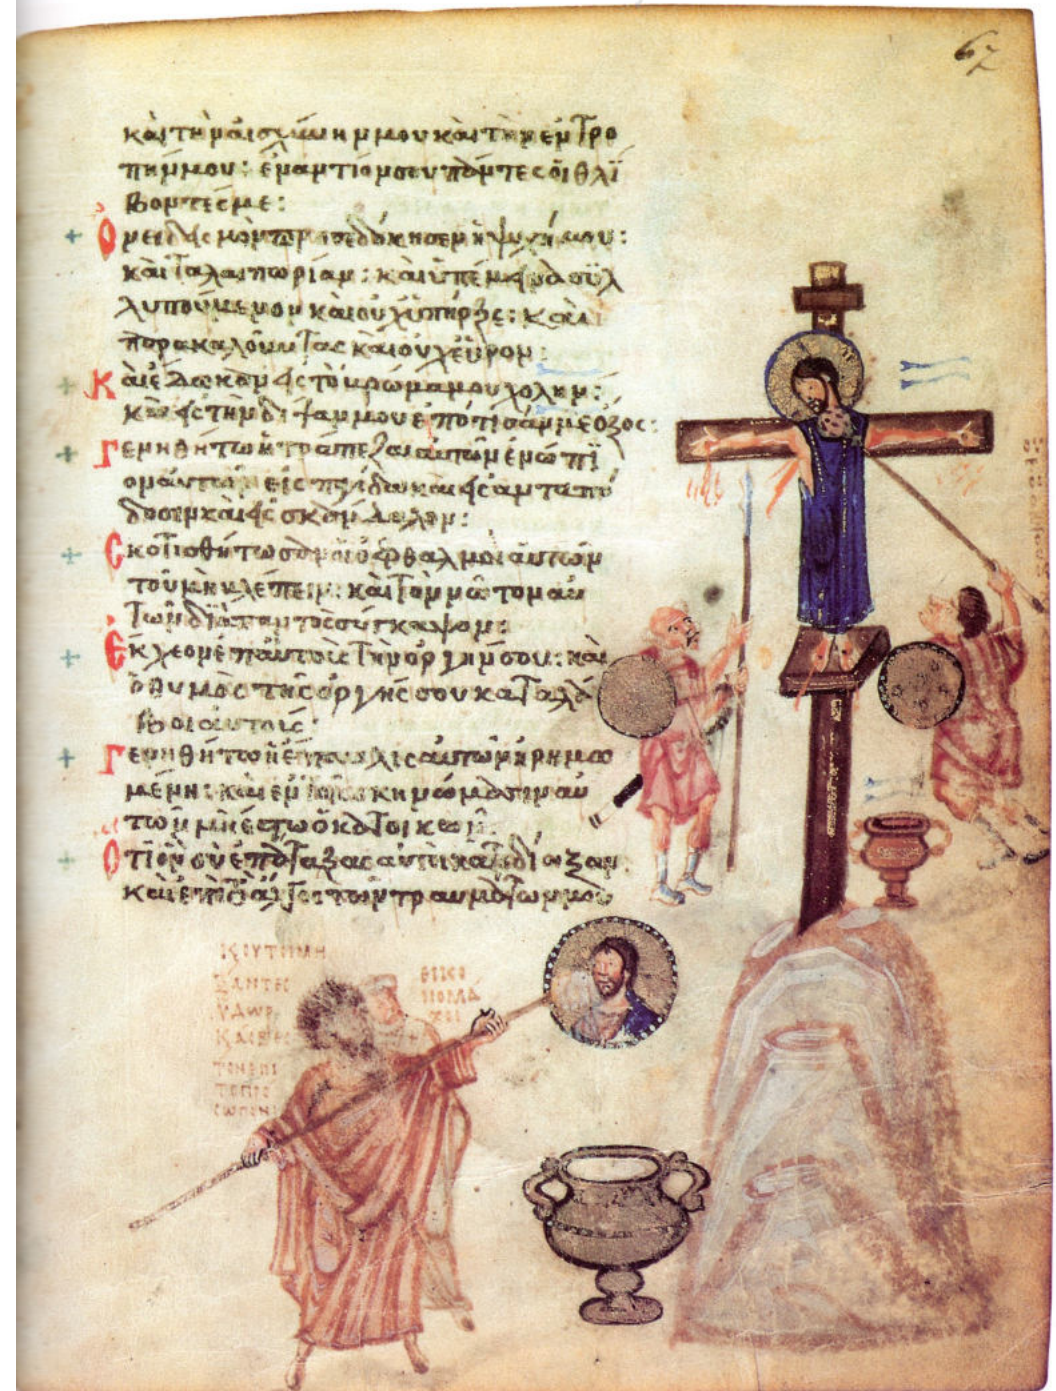 67
καὶ τὴν αἰσχύνην μου καὶ τὴν ἐντρο
πήν μου: ἐναντίον σου πάντες οἱ θλί
βοντές με:
Ὀνειδισμὸν προσεδόκησεν ἡ ψυχή μου:
καὶ ταλαιπωρίαν: καὶ ὑπέμεινα συλ
λυπούμενον καὶ οὐχ ὑπῆρξε: καὶ
παρακαλοῦντας καὶ οὐχ εὗρον:
Καὶ ἔδωκαν εἰς τὸ βρῶμα μου χολὴν:
καὶ εἰς τὴν δίψαν μου ἐπότισάν με ὄξος:
Γενηθήτω ἡ τράπεζα αὐτῶν ἐνώπι
ον αὐτῶν εἰς παγίδα καὶ εἰς ἀνταπό
δοσιν καὶ εἰς σκάνδαλον:
Σκοτισθήτωσαν οἱ ὀφθαλμοὶ αὐτῶν
τοῦ μὴ βλέπειν: καὶ τὸν νῶτον αὐ
τῶν διὰ παντὸς σύγκαμψον:
Ἔκχεον ἐπ αὐτοὺς τὴν ὀργήν σου: καὶ
ὁ θυμὸς τῆς ὀργῆς σου καταλά
βοι αὐτούς:
Γενηθήτω ἡ ἔπαυλις αὐτῶν ἠρημω
μένη: καὶ ἐν τοῖς σκηνώμασιν αὐ
τῶν μὴ ἔστω ὁ κατοικῶν:
Ὅτι ὃν σὺ ἐπάταξας αὐτοὶ κατεδίωξαν
καὶ ἐπὶ τὸ ἄλγος τῶν τραυμάτων μου
Κ ΟΥΤΟΙ ΜΗ
ΞΑΝΤΕC
ΥΔΩΡ
ΚΑΙ
ΤΟΝ ΕΠΙ
ΤΟ ΠΡΟ
CΩΠΟΝ
ΕΙΚΟ
ΝΟΜΑ
ΧΟΙ